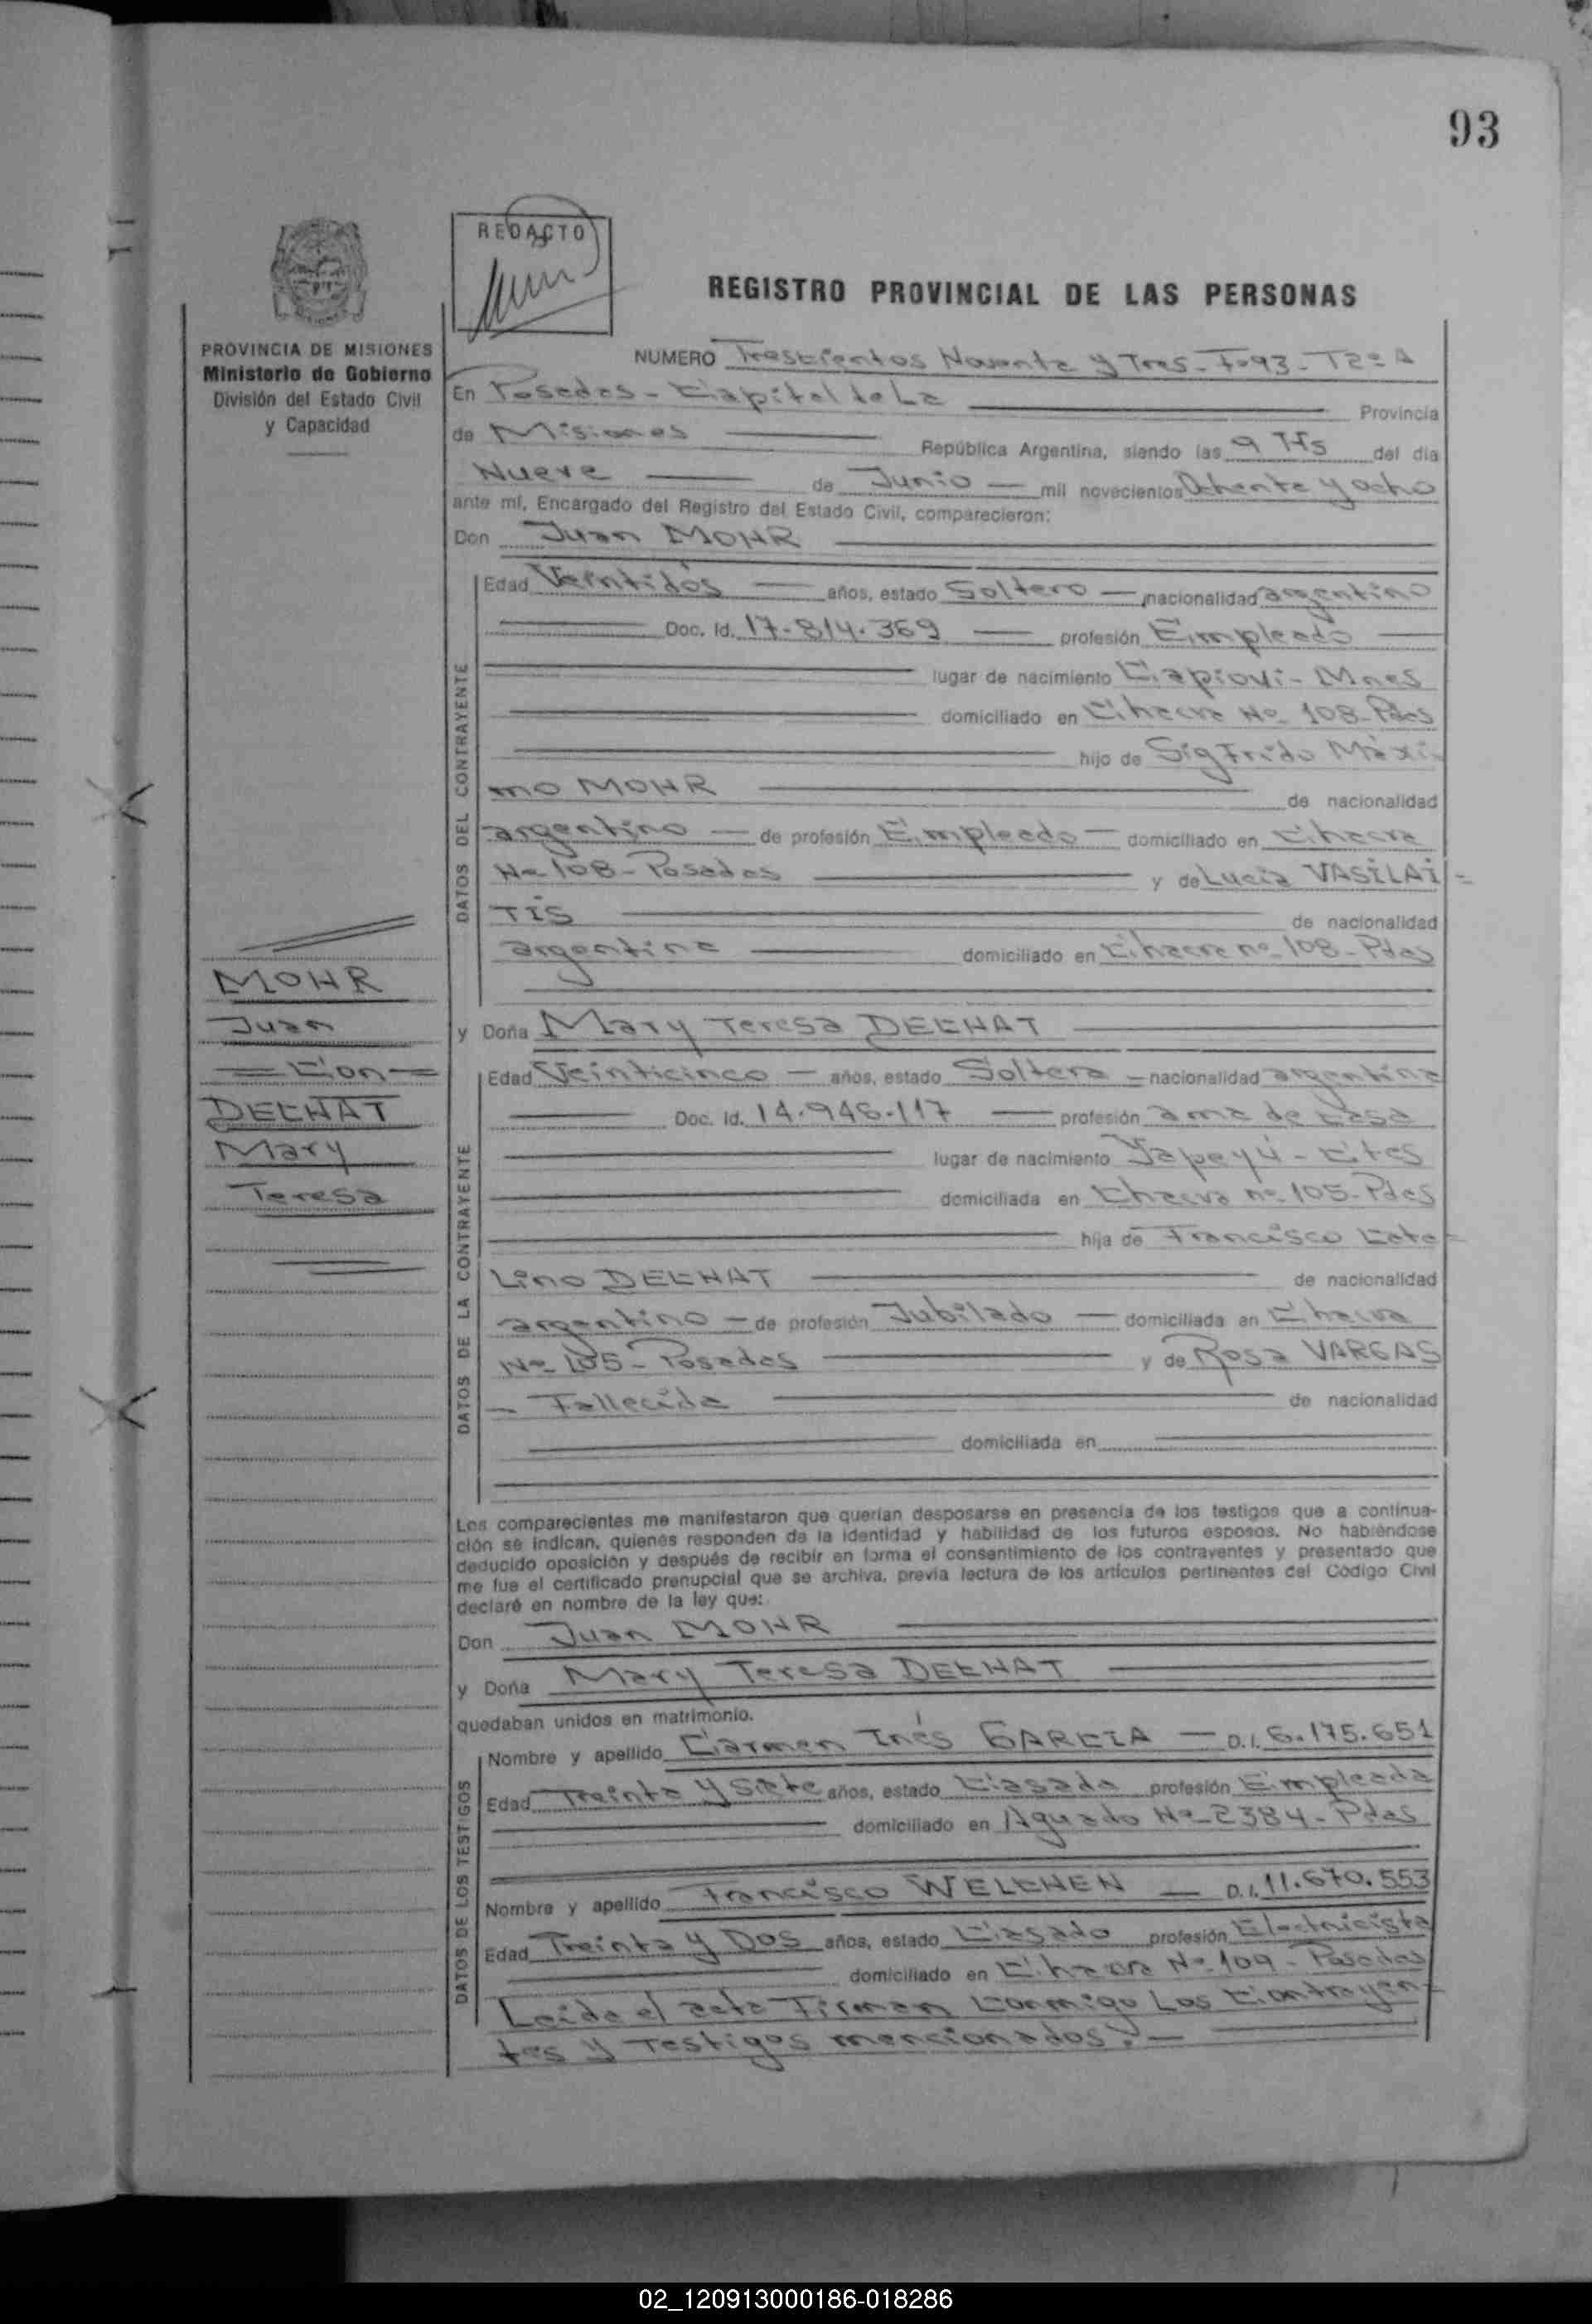 93
REDACTO
REGISTRO PROVINCIAL DE LAS PERSONAS
PROVINCIA DE MISIONES
Ministerio de Gobierno
División del Estado Civil
y Capacidad
NUMERO Trescientos Noventa y Tres - F-93 - T2º A
En Posadas - Capital de La Provincia
de Misiones República Argentina, siendo las 9 Hs del día
Nueve de Junio mil novecientos Ochenta y ocho
ante mí, Encargado del Registro del Estado Civil, comparecieron:
Don Juan MOHR
DATOS DEL CONTRAYENTE
Edad Veintidós años, estado Soltero nacionalidad argentino
Doc. Id. 17.814.369 profesión Empleado
lugar de nacimiento Capioví - Mnes
domiciliado en Chacra Nº 108 - Pdas
hijo de Sigfrido Máxi-
mo MOHR de nacionalidad
argentino de profesión Empleado domiciliado en Chacra
Nº 108 - Posadas y de Lucía VASILAI=
TIS de nacionalidad
argentina domiciliado en Chacra nº 108 - Pdas
MOHR
Juan
= Con =
DECHAT
Mary
Teresa
y Doña Mary Teresa DECHAT
DATOS DE LA CONTRAYENTE
Edad Veinticinco años, estado Soltera nacionalidad argentina
Doc. Id. 14.948.117 profesión ama de casa
lugar de nacimiento Yapeyú - Ctes
domiciliada en Chacra nº 105 - Pdas
hija de Francisco Cata=
Lino DECHAT de nacionalidad
argentino de profesión Jubilado domiciliada en Chacra
Nº 105 - Posadas y de Rosa VARGAS
- Fallecida de nacionalidad
domiciliada en
Los comparecientes me manifestaron que querían desposarse en presencia de los testigos que a continua-
ción se indican, quienes responden de la identidad y habilidad de los futuros esposos. No habiéndose
deducido oposición y después de recibir en forma el consentimiento de los contraventes y presentado que
me fue el certificado prenupcial que se archiva, previa lectura de los artículos pertinentes del Código Civil
declaré en nombre de la ley que:
Don Juan MOHR
y Doña Mary Teresa DECHAT
quedaban unidos en matrimonio.
DATOS DE LOS TESTIGOS
Nombre y apellido Carmen Inés GARCIA - D.I. 6.175.651
Edad Treinta y Siete años, estado Casada profesión Empleada
domiciliado en Aguado Nº 2384 - Pdas
Nombre y apellido Francisco WELCHEN - D.I. 11.670.553
Edad Treinta y Dos años, estado Casado profesión Electricista
domiciliado en Chacra Nº 109 - Posadas
Leída el acta Firman Conmigo Los Contrayen-
tes y Testigos mencionados.-
02_120913000186-018286